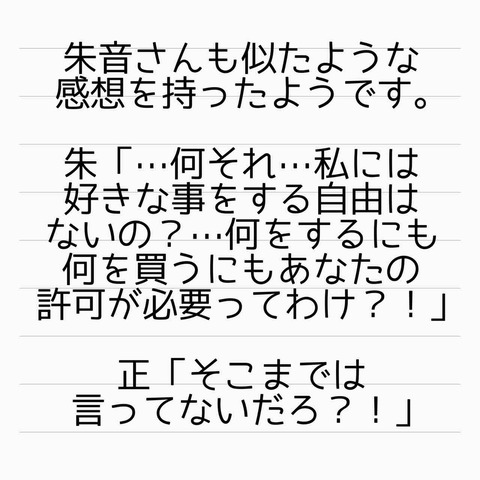 朱音さんも似たような
感想を持ったようです。
朱「…何それ…私には
好きな事をする自由は
ないの？…何をするにも
何を買うにもあなたの
許可が必要ってわけ？！」
正「そこまでは
言ってないだろ？！」